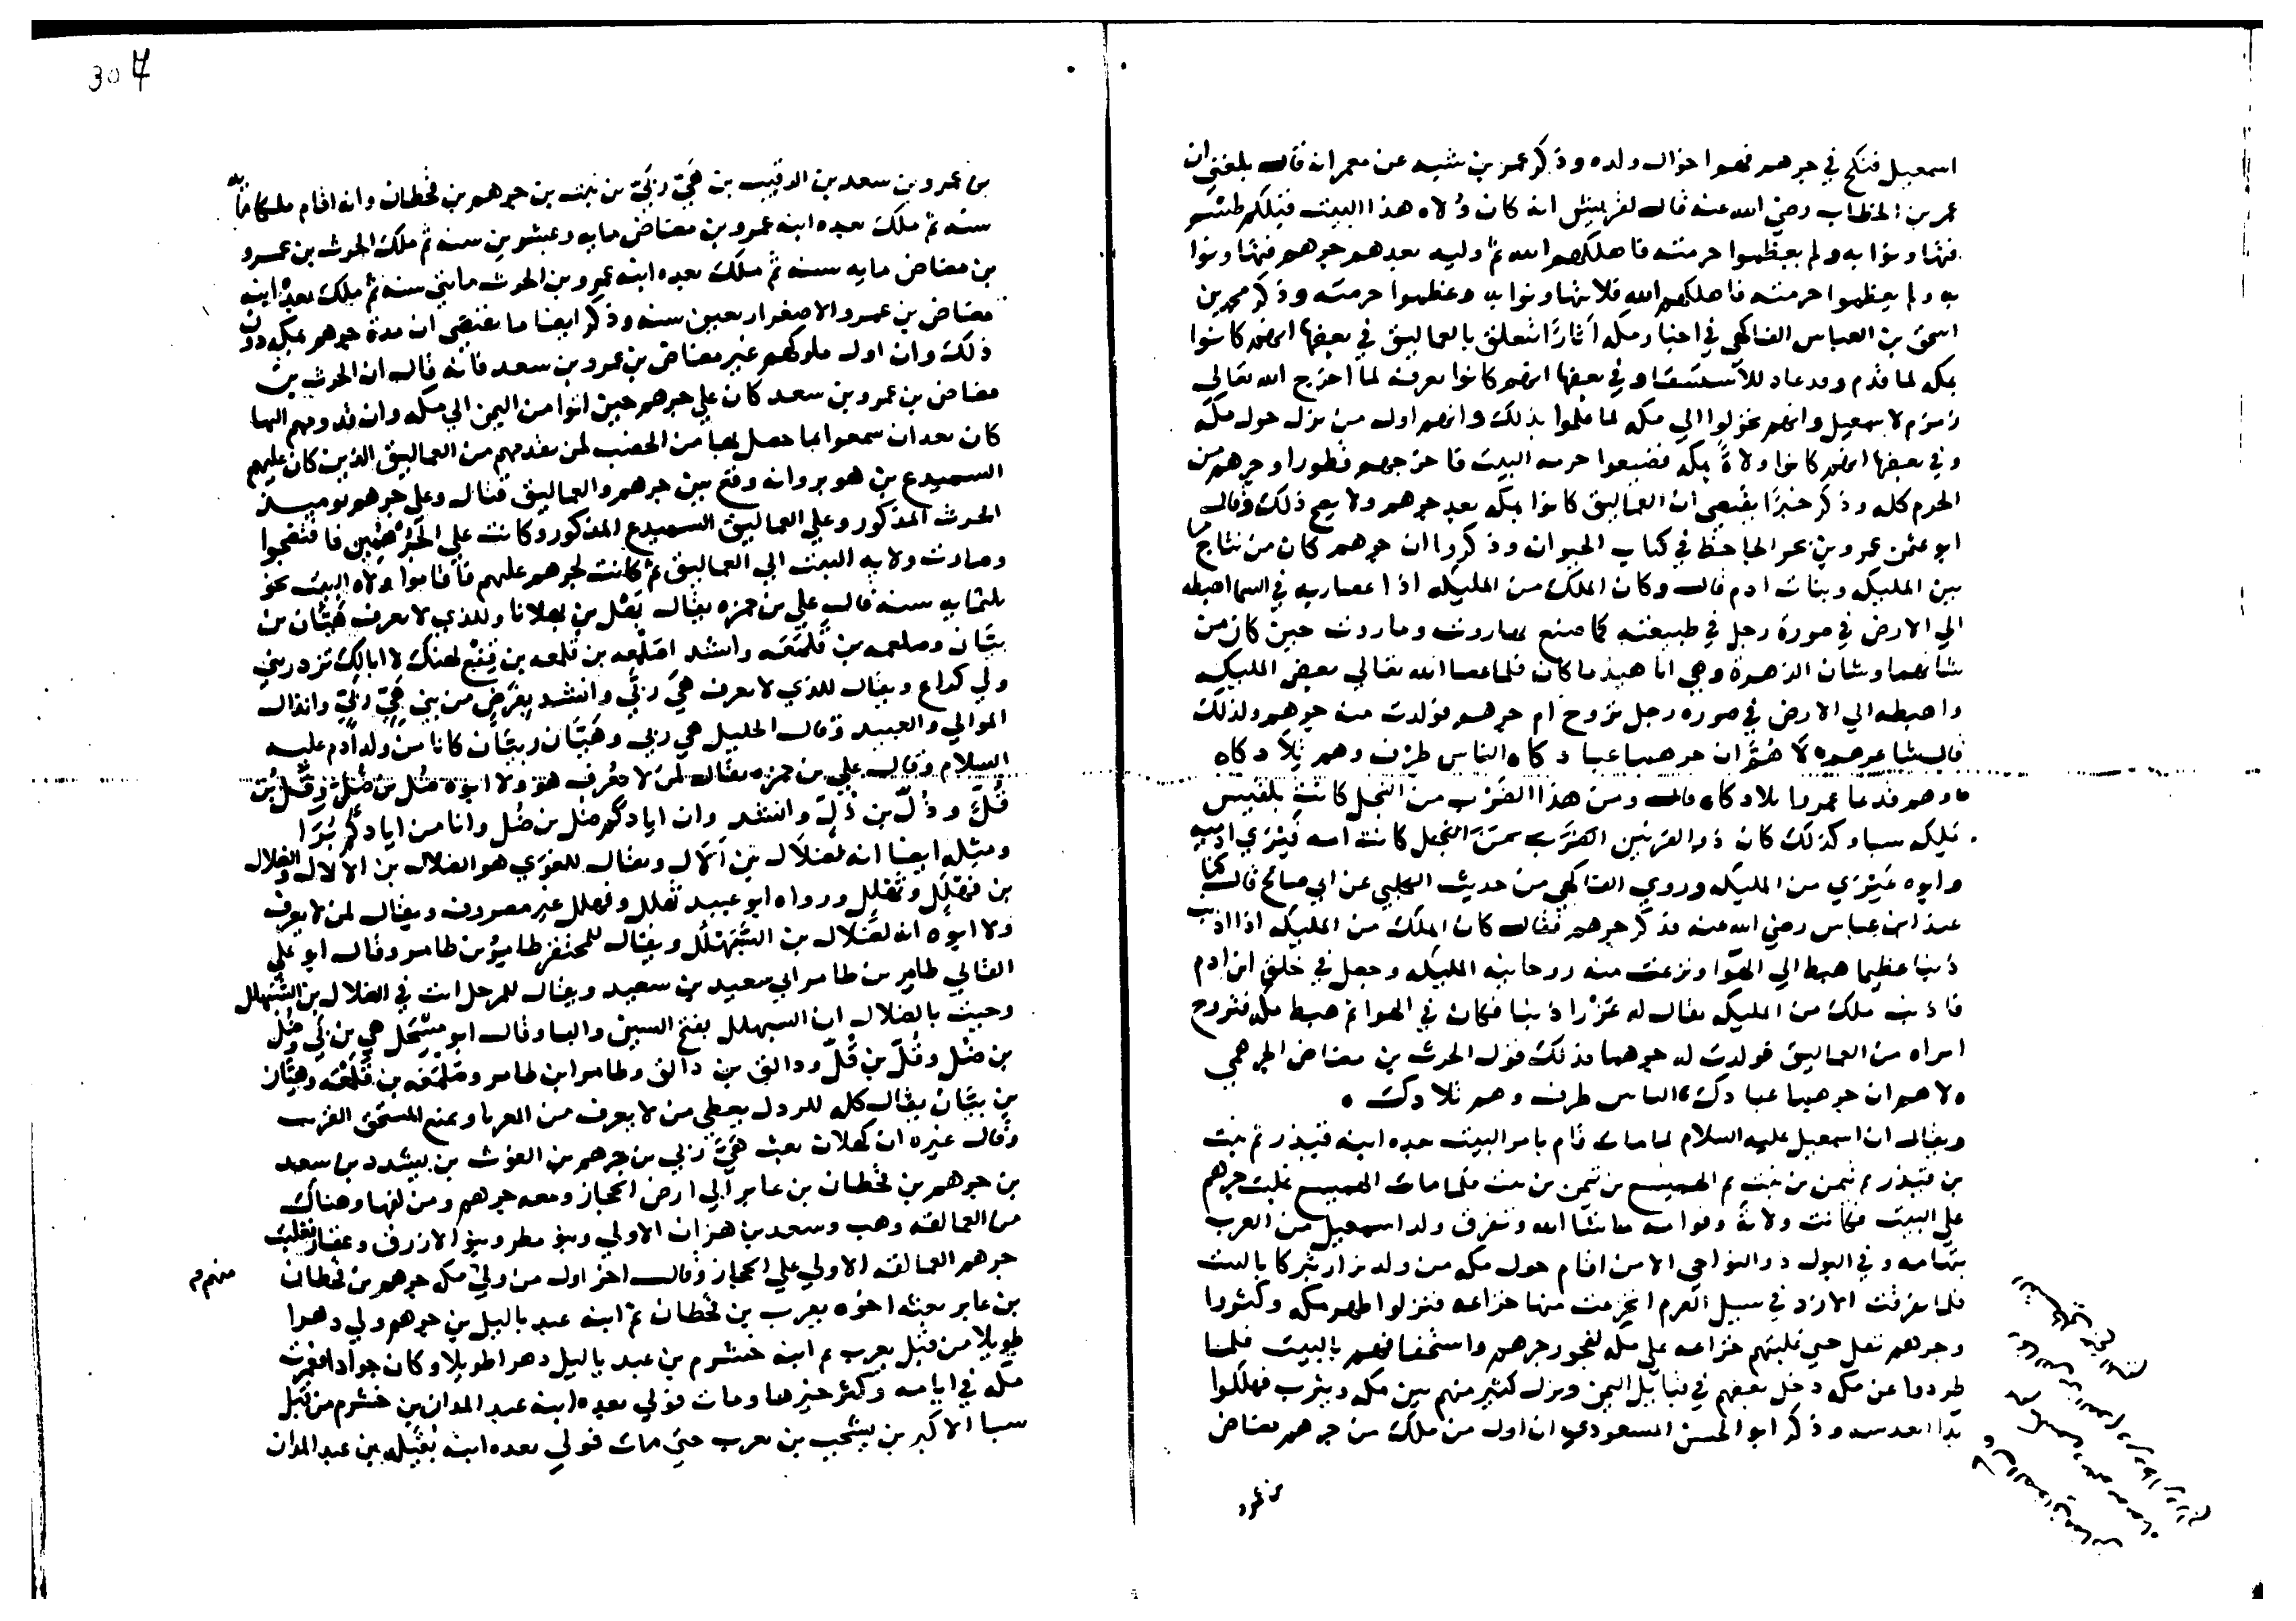 اسمعيل فنكح في جرهم فهم اخوال ولده وذكر عمر بن شبه عن معمر انه قال بلغني ان
عمر بن الخطاب رضي الله عنه قال لقريش انه كان ولاة هذا البيت قبلكم طسم
فتهاونوا به ولم يعظموا حرمته فاهلكهم الله ثم وليه بعدهم جرهم فتهاونوا
به ولم يعظموا حرمته فاهلكهم الله فلا تهاونوا به وعظموا حرمته وذكر محمد بن
اسحق بن العباس الفاكهي في اخبار مكه آثارًا تتعلق بالعماليق في بعضها انهم كانوا
بمكه لما قدم وفد عاد للاستسقا وفي بعضها انهم كانوا بعرفه لما اخرج الله تعالى
زمزم لاسمعيل وانهم تحولوا الي مكه لما علموا بذلك وانهم اول من نزل حول مكه
وفي بعضها انهم كانوا ولاةً بمكه فضيعوا حرمه البيت فاخرجهم قطورا وجرهم من
الحرم كله وذكر خبرًا يقتضي ان العماليق كانوا بمكه بعد جرهم ولا يصح ذلك وقال
ابو عثمن عمرو بن بحر الجاحظ في كتاب الحيوان وذكروا ان جرهم كان من نتاج ما
بين المليكه وبنات ادم قال وكان الملك من المليكه اذا عصا ربه في السما اهبطه
الي الارض في صورة رجل في طبيعته كما صنع بهاروت وماروت حين كان من
شانهما وشان الزهرة وهي اناهيد ما كان فلما عصا الله تعالي بعض المليكه
واهبطه الي الارض في صوره رجل تزوج ام جرهم فولدت منه جرهم ولذلك
قال شاعرهم ه لا هُمَّ ان جرهما عبادكاه الناس طرف وهم تلادكاه
وهم قدما عمروا بلادكاه قال ومن هذا الضرب من النجل كانت بلقيس
مليكه سبا وكذلك كان ذو القرنين امه قيري ادميه
وابوه عيري من المليكه وروي الفاكهي من حديث الكلبي عن ابي صالح قال كنا
عند ابن عباس رضي الله عنه فذكر جرهم فقال كان الملك من المليكه اذا اذنب
ذنبا عظيما هبط الي الهوا ونزعت منه روحانيه المليكه وجعل في خلق ابن ادم
فاذنب ملك من المليكه يقال له عزرا ذنبا فكان في الهوا ثم هبط مكه فتزوج
امراه من العماليق فولدت له جرهما فذلك قول الحرث بن مضاض الجرهمي
ه لا هم ان جرهما عبادك ه الناس طرف وهم تلادك ه
ويقال ان اسمعيل عليه السلام لما مات قام بامر البيت بعده ابنه قيذر ثم نبت
بن قيذر ثم تيمن بن نبت ثم الهميسع بن تيمن بن نبت فلما مات الهميسع غلبت جرهم
علي البيت فكانت ولاة وقوامه ما شا الله وتفرق ولد اسمعيل من العرب
بتهامه وفي البوادي والنواحي الا من اقام حول مكه من ولد نزار تبركا بالبيت
فلما تفرقت الازد في سبيل العرم انخزعت منها خزاعه فنزلوا ظهر مكه وكثروا
وجرهم تقل حتي غلبتهم خزاعه علي مكه لفجور جرهم واستخفافهم بالبيت فلما
طردوا عن مكه دخل بعضهم في قبايل اليمن ونزل كثير منهم بين مكه ويثرب فهلكوا
وذكر ابو الحسن المسعودي ان اول من ملك من جرهم مضاض
بن عمرو
307
بن عمرو بن سعد بن الرقيب بن هَيّ بن بَيّ بن نبت بن جرهم بن قحطان وانه اقام ملكا مايه
سنه ثم ملك بعده ابنه عمرو بن مضاض مايه وعشرين سنه ثم ملك الحرث بن عمرو
بن مضاض مايه سنه ثم ملك بعده ابنه عمرو بن الحرث مايتي سنه ثم ملك بعده ابنه
مضاض بن عمرو الاصغر اربعين سنه وذكر ايضا ما يقتضي ان مدة جرهم بمكه دون
ذلك وان اول ملوكهم غير مضاض بن عمرو بن سعد فانه قال ان الحرث بن
مضاض بن عمرو بن سعد كان علي جرهم حين اتوا من اليمن الي مكه وان قدومهم اليها
كان بعد ان سمعوا بما حصل بها من الخصب لمن تقدمهم من العماليق الذين كان عليهم
السميدع بن هوبر وانه وقع بين جرهم والعماليق قتال وعلي جرهم يوميذ
الحرث المذكور وعلي العماليق السميدع المذكور وكانت علي الجرهميين فافتضحوا
وصارت ولايه البيت الي العماليق ثم كانت لجرهم عليهم فاقاموا ولاه البيت نحو
ثلثمايه سنه قال علي بن حمزه يقال وللذي لا يعرف هَيَّان بن
بيَّان وصلعمه بن قَلمَعَه وانشد اصَلْمَعه بن قلمعه بن فقع لهنك لا ابالك تزدريني
ولي كراع ويقال للذي لا يعرف هَيّ بن بَيّ وانشد بعَرْضٍ من بني هَيِّ بن بَيٍّ وانذال
الموالي والعبيد وقال الخليل هي بن بي وهَيَّان بن بيَّان كانا من ولد ادم عليه
السلام وقال علي بن حمزه يقال لمن لا يعرف هو ولا ابوه ضُل بن ضُلّ وقُلّ بن
قُلّ وذُلّ بن ذُلّ وانشد وان ايادكم ضُل بن ضُل وانا من ايادكم بُرَا
ومثله ايضا انه لضلال بن ألال ويقال للغوي هو الضلال بن الالال والضلال
بن فهلل وثهلل ورواه ابو عبيد ثهلل وفهلل غير مصروف ويقال لمن لا يعرف
ولا ابوه انه لضلال بن السَّبَهْلَل ويقال للمحتقر طامِرُ بن طامر وقال ابو علي
القالي طامر بن طامر ابي سعيد بن سعيد ويقال للرجل انت في الضلال بن السَّبَهلل
وجيت بالضلال ابن السبهلل بفتح السين والبا وقال ابو مِسْحَل هي بن بَي وضُل
بن ضُل وقُلّ بن قُلّ ودالق بن دالق وطامر ابن طامر وصَلْمَعَه بن قَلْمَعَه وهيَّان
بن بيَّان يقال كله للرذل يعطي من لا يعرف من الغربا ويمنع المستحق القريب
وقال غيره ان كهلان بعث هَيّ بن بي بن جرهم بن الغوث بن بيشدد بن سعد
بن جرهم بن قحطان بن عابر الي ارض الحجاز ومعه جرهم ومن لفها وهناك
من العمالقه وهب وسعد بن هزان الاولي وبنو مطر وبنو الازرق وغفار فغلبت
جرهم العمالقه الاولي علي الحجاز وقال اخر اول من ولي مكه جرهم بن قحطان
منهم
بن عابر بعثه اخوه يعرب بن قحطان ثم ابنه عبد ياليل بن جرهم ولي دهرا
طويلا من قبل يعرب ثم ابنه خشرم بن عبد ياليل دهرا طويلا وكان جوادا فعزت
مكه في ايامه وكثر خيرها ومات فولي بعده ابنه عبد المدان بن خشرم من قبل
سبا الاكبر بن يشجب بن يعرب حتي مات فولي بعده ابنه نُفَيله بن عبد المدان